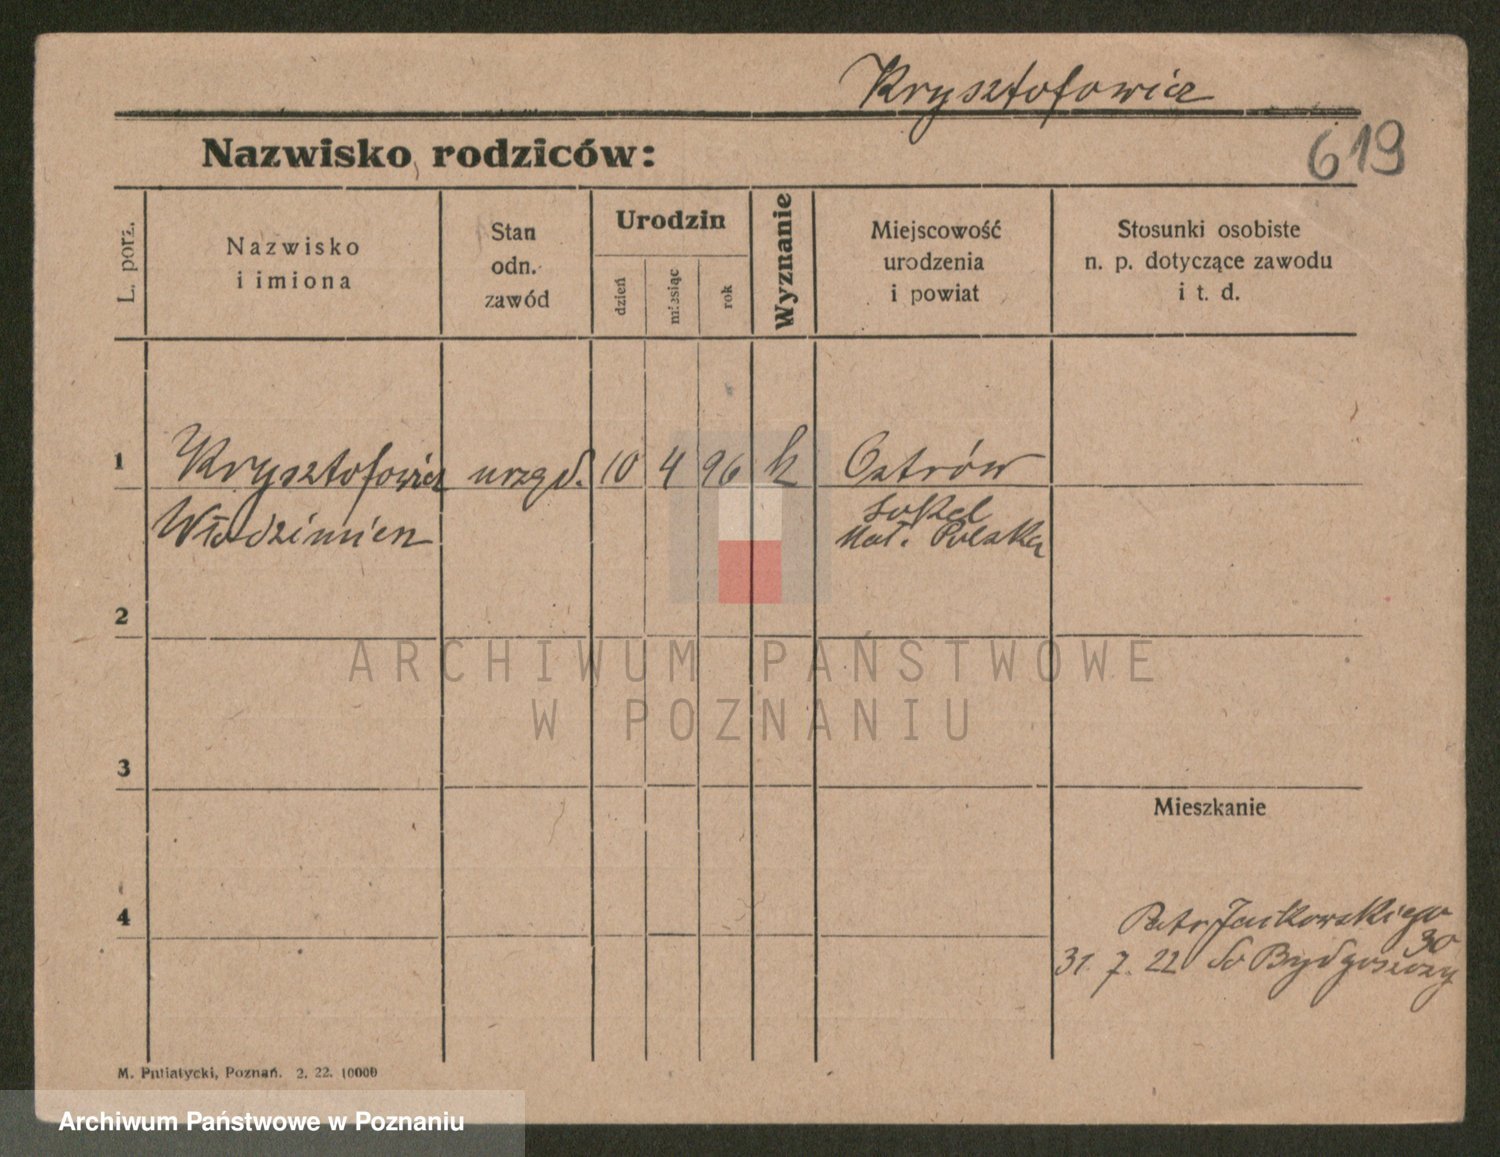 Krysztofowicz
619
Nazwisko rodziców:
L. porz.
Nazwisko
i imiona
Stan
odn.
zawód
Urodzin
dzień
miesiąc
rok
Wyznanie
Miejscowość
urodzenia
i powiat
Stosunki osobiste
n. p. dotyczące zawodu
i t. d.
1 Krysztofowicz urzęd. 10 4 96 k Ostrów
Włodzimierz
Sokal
Mał. Polska
2
ARCHIWUM PAŃSTWOWE
W POZNANIU
3
Mieszkanie
4
Patr. Jackowskiego
30
31. 7. 22 do Bydgoszczy
M. Putiatycki, Poznań. 2. 22. 10000
Archiwum Państwowe w Poznaniu